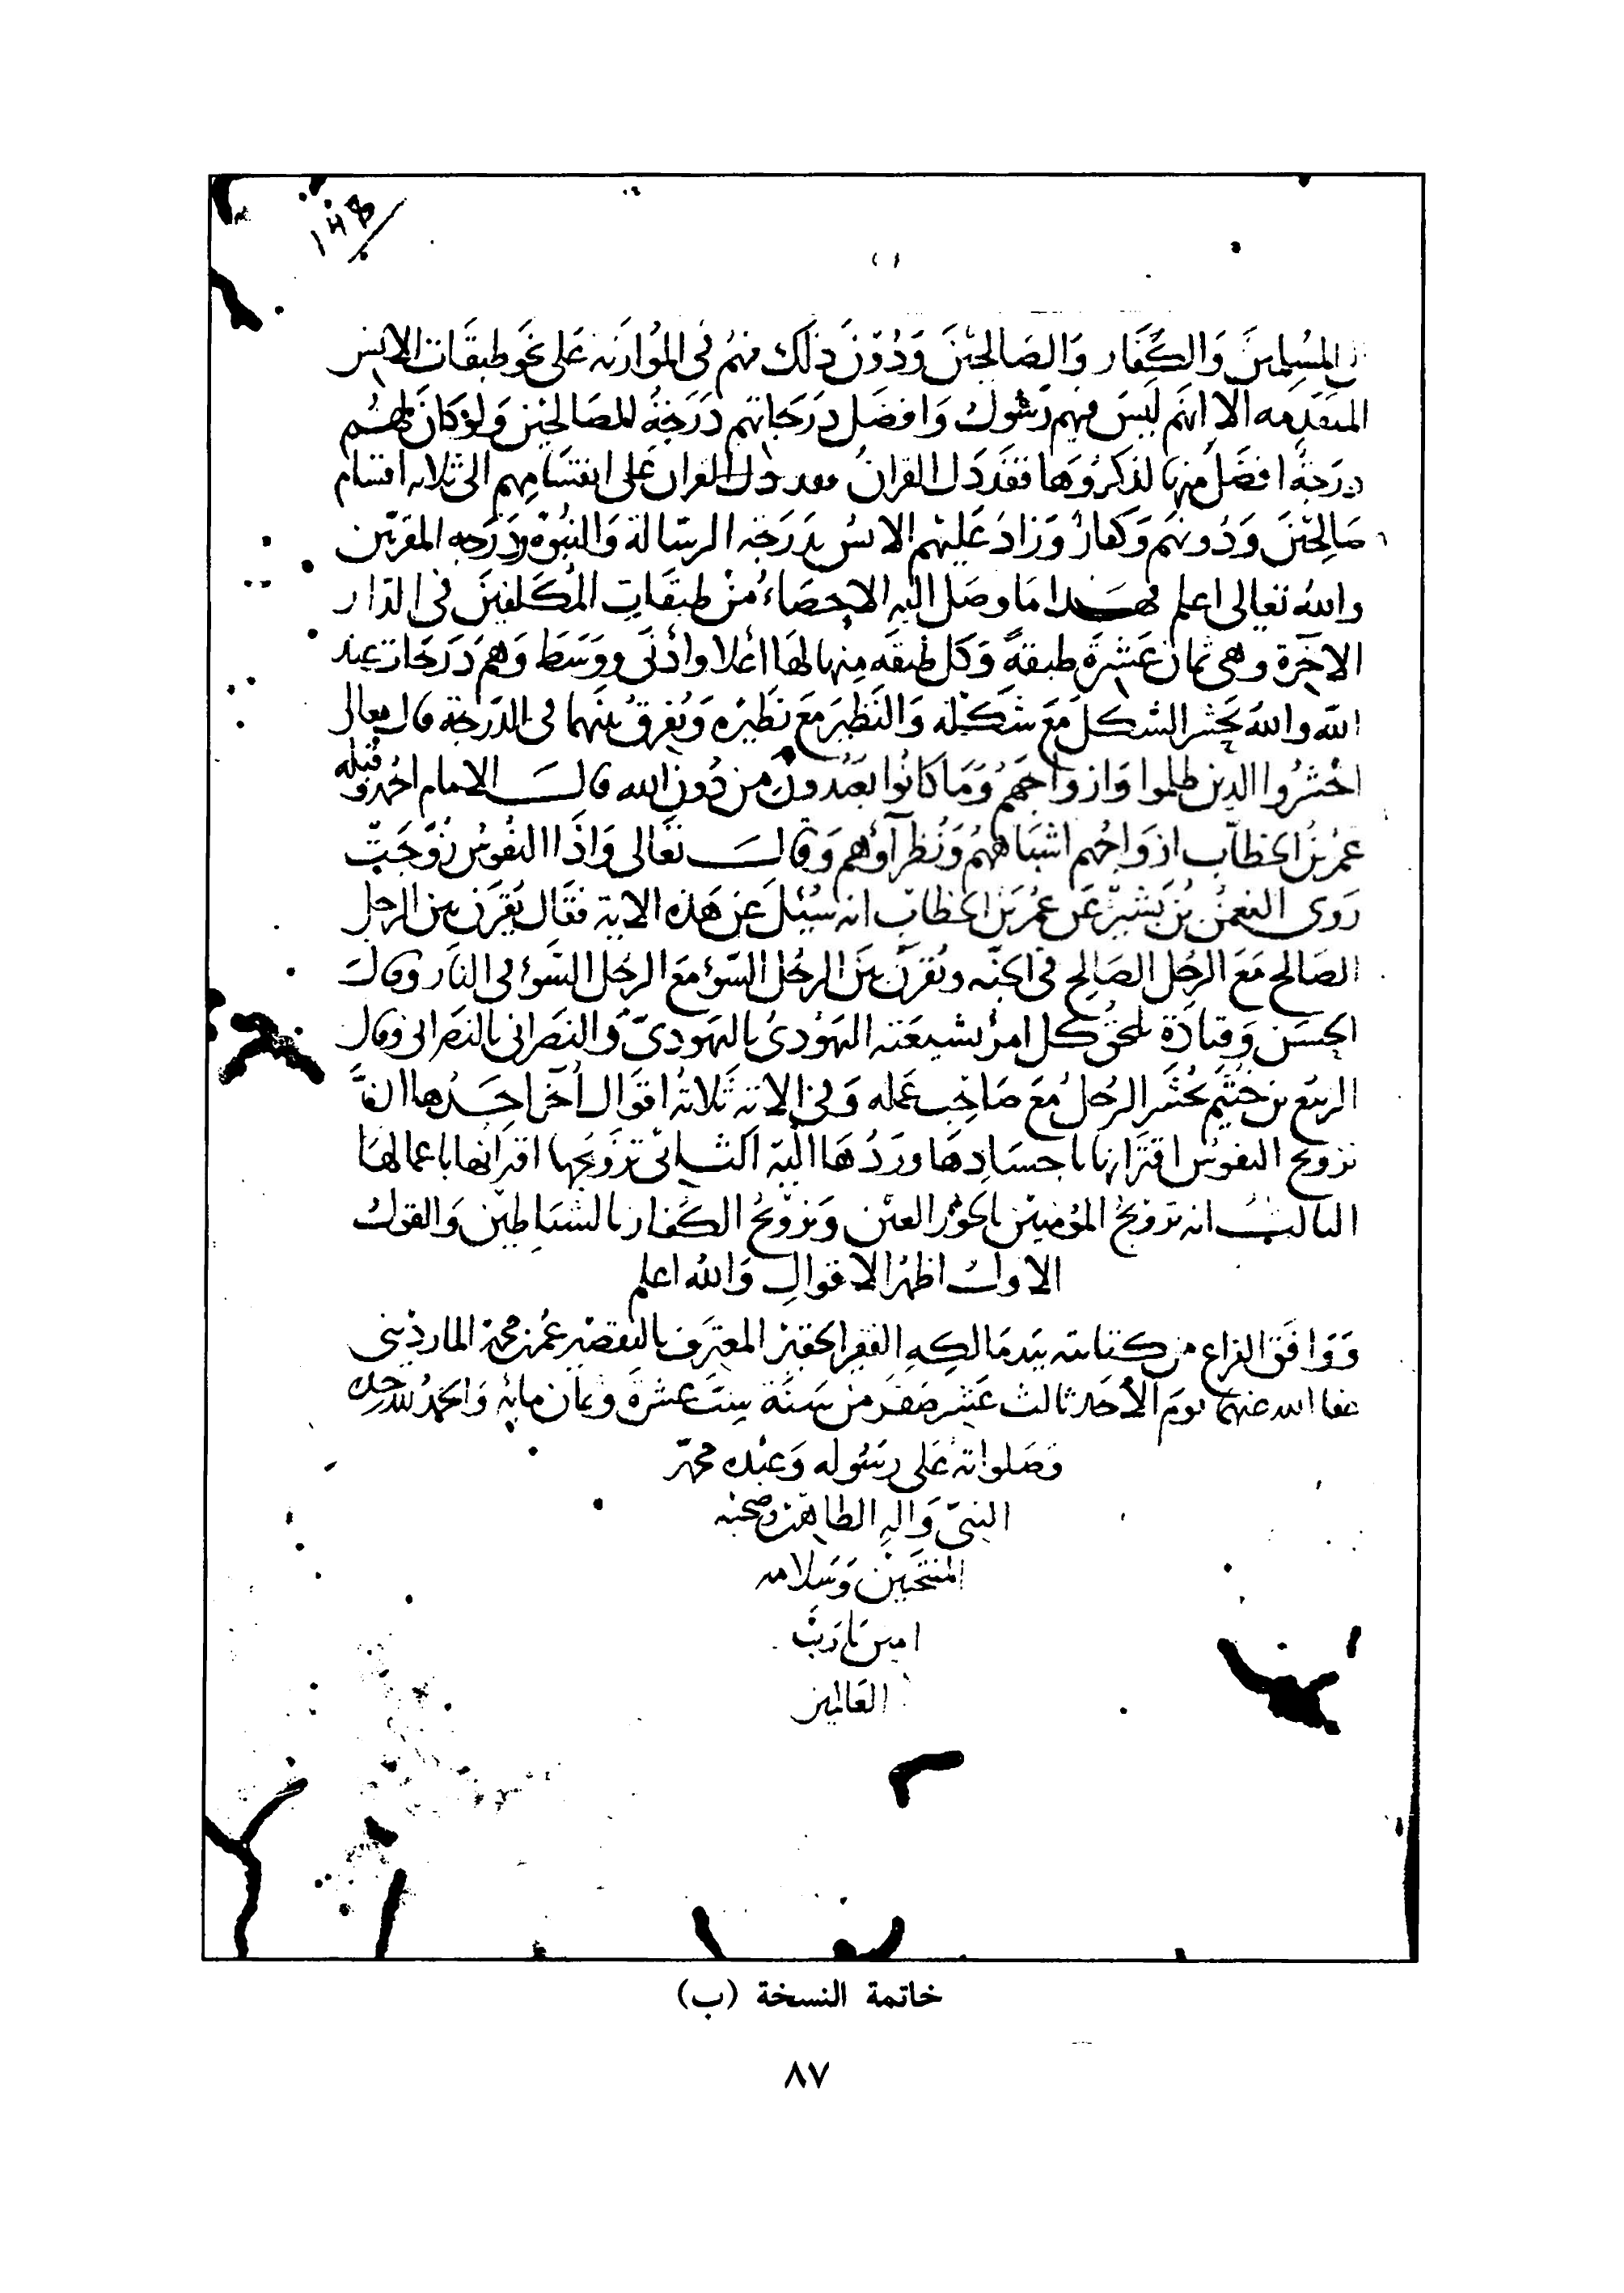 المسلمين وَالكُفَار وَالصَالحِيْنَ وَدُوْنَ ذلَك منهُم فى المُوازَنه عَلى نحَو طبقَات الانس
المتقدمه الا انهَم لَيسَ فيهم رَسُولٌ وَافضَل دَرَجَاتهم دَرَجَةُ للصَالحِيْن وَلوَ كانَ لهُم
دَرَجةٌ افضَلَ منهَا لذكَرُوَهَا فقَد دَل القرانُ فقد دل القران عَلى انقسَامِهم الى ثلاثه اقسَام
صَالحِيْنَ وَدُونهَم وَكفارٌ وَزَادَ عَليْهم الانسُ بدَرَجَة الرسَالة وَالنبُوّة وَدَرَجه المقربين
والله تعَالى اعلم فهَذا مَا وصَل اليه الاحصَاءُ منْ طبقَاتِ المُكَلفِينَ فى الدّار
الاخرَة وهى ثمان عَشَرةَ طبقةً وَكل طبقَه منهَا لهَا أعلا وأدْنَى ووَسَط وَهم دَرَجَات عند
الله والله يحَشر الشكلَ مَعَ شكَلِه وَالنَظيرَ مَعَ نَظيْره وَيُقرنُ بينَهما فى الدَرجة قال تعالى
احْشرُوا الذين ظلموا وَازواجَهمُ وَمَا كانُوا يعَبُدونَ من دُون الله قالَ الامام احمد وقبله
عمرُ بنُ الخطاب ازوَاجهُم اشبَاههُم وَنُظرآؤهُم وَقالَ تعَالى وَاذَا النفُوسُ زُوّجَت
رَوى النعمنُ بنُ بَشيْرٍ عَن عمُرَ بن الخطاب انه سُئلَ عَن هَذه الاية فقَال يُقرَنُ بين الرجل
الصَالح مَعَ الرجُل الصَالِح فى الجنّه ويُقرَنُ بيَن الرجُل السّوْءِ مَعَ الرجُل السَوْءِ فى النَار وقَالَ
الحسَن وَقتادَة يلحقُ كل امرُئ بشيعَته اليهَوُدىُ باليهَودىّ وَالنصَرانى بالنصَرانى وقال
الربيع بن خثيم يحُشَر الرجُلُ مَعَ صَاحب عمَله وَفى الاية ثَلاثةُ اقوَال اُخَر احَدُها انّ
تزويجَ النفوُس اقترَانها باجسَادِهَا وردُهَا اليْه الثَانى تزَويجُها اقترانُهَا باعمالهَا
الثالثُ انه تزويجُ المؤمنِين بالحوُر العِيْن وَتزويجُ الكفار بالشيَاطِيْن وَالقولُ
الاولُ اظهرُ الاقوالِ وَالله اعلم
وَوَافَق الفراغ من كتابته بيَد مَالكهِ الفقير الحقير المعترفِ بالتقصِير عُمر بن محمد الماردْينى
عفا الله عنهما يومَ الأحَد ثالث عَشر صَفَر منْ سَنَة ستَ عشرةَ وثمان مايه وَالحمدُ لله وحده
وَصَلواته عَلى رسُوله وَعبْده محمّد
النبىّ وَالهِ الطاهرين وصحبه
المنتخبين وَسَلامه
امين يارَبَّ
العَالمين
خاتمة النسخة (ب)
٨٧